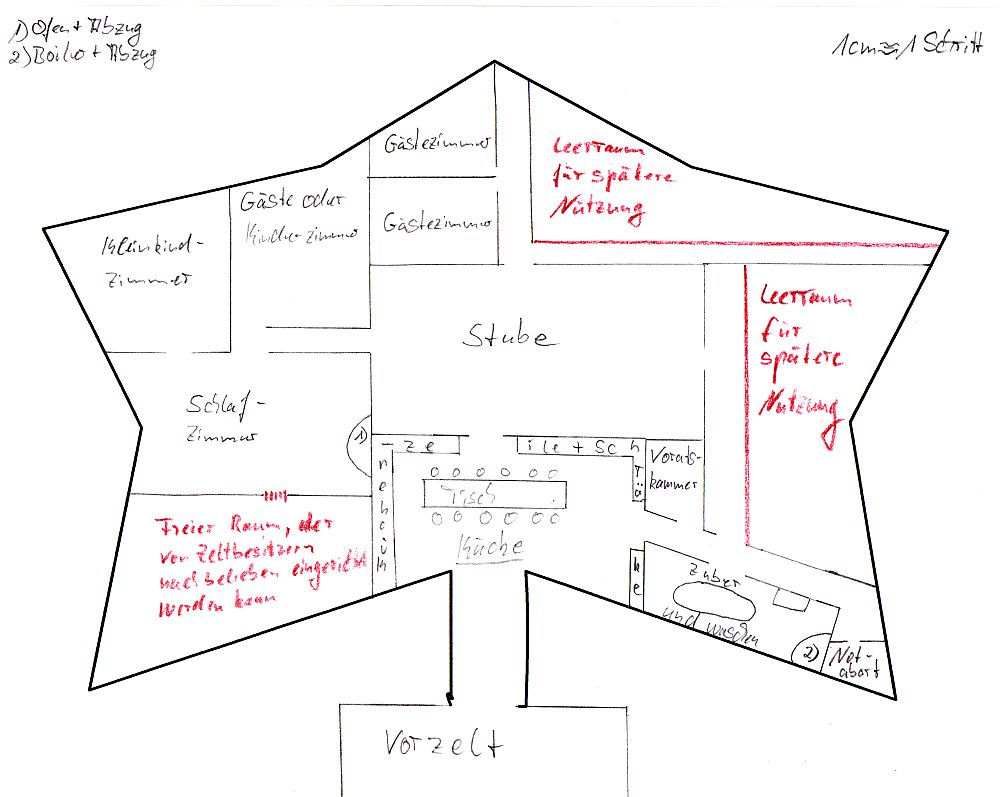 1) Ofen + Abzug
2) Boiler + Abzug
1cm ≈ 1 Schritt
Gästezimmer
Leerraum
für spätere
Nutzung
Gäste oder
Kinderzimmer
Gästezimmer
Kleinkind-
Zimmer
Leerraum
für
spätere
Nutzung
Stube
Schlaf-
Zimmer
1)
-ze
ile + Sch
rä
Vorrats-
kammer
Tisch
Küche
Freier Raum, der
von Zeltbesitzern
nach belieben eingerichtet
werden kann
ke
Zuber
und waschen
2)
Not-
abort
Vorzelt